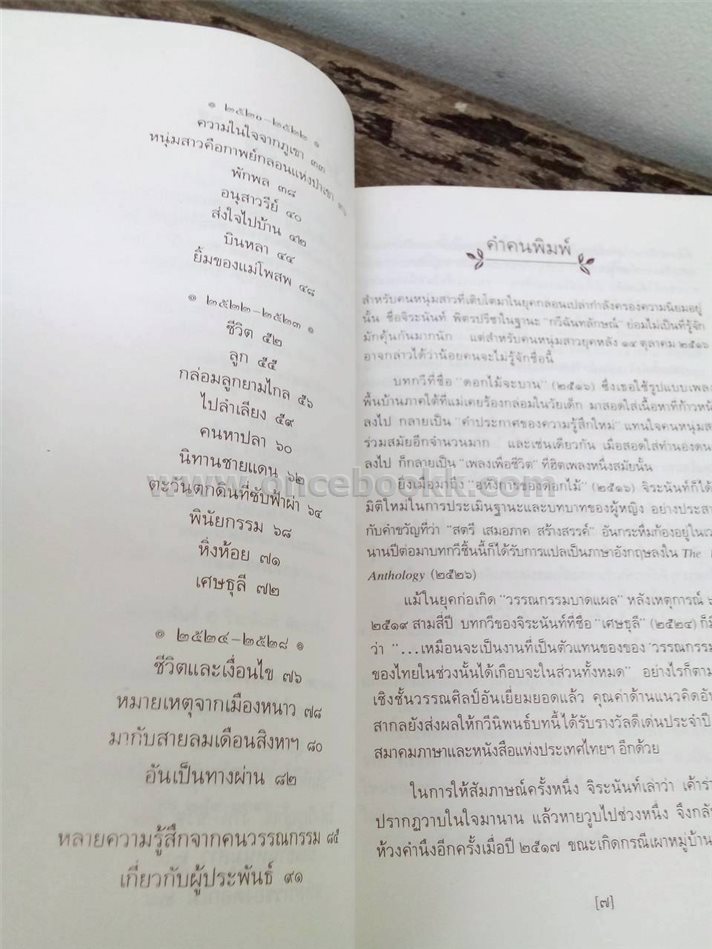 ๑ ๒๕๒๐-๒๕๒๒ ๑
ความในใจจากภูเขา ๓๓
หนุ่มสาวคือกาพย์กลอนแห่งป่าเขา
พักพล ๓๘
อนุสาวรีย์ ๔๐
ส่งใจไปบ้าน ๔๒
บินหลา ๔๔
ยิ้มของแม่โพสพ ๔๘
๑ ๒๕๒๒-๒๕๒๓ ๑
ชีวิต ๕๒
ลูก ๕๕
กล่อมลูกยามไกล ๕๖
ไปลำเลียง ๕๙
คนหาปลา ๖๐
นิทานชายแดน ๖๒
ตะวันตกดินที่ซับฟ้าผ่า ๖๔
พินัยกรรม ๖๘
หิ่งห้อย ๗๑
เศษธุลี ๗๒
๑ ๒๕๒๔-๒๕๒๘ ๑
ชีวิตและเงื่อนไข ๗๖
หมายเหตุจากเมืองหนาว ๗๘
มากับสายลมเดือนสิงหาฯ ๘๐
อันเป็นทางผ่าน ๘๒
หลายความรู้สึกจากคนวรรณกรรม ๘๕
เกี่ยวกับผู้ประพันธ์ ๙๑
คำคนพิมพ์
สำหรับคนหนุ่มสาวที่เติบโตมาในยุคกลอนเปล่ากำลังครองความนิยมอยู่
นั้น ชื่อจิระนันท์ พิตรปรีชาในฐานะ "กวีฉันทลักษณ์" ย่อมไม่เป็นที่รู้จัก
มักคุ้นกันมากนัก แต่สำหรับคนหนุ่มสาวยุคหลัง ๑๔ ตุลาคม ๒๕๑๖
อาจกล่าวได้ว่าน้อยคนจะไม่รู้จักชื่อนี้
บทกวีที่ชื่อ "ดอกไม้จะบาน" (๒๕๑๖) ซึ่งเธอใช้รูปแบบเพลง
พื้นบ้านภาคใต้ที่แม่เคยร้องกล่อมในวัยเด็ก มาสอดใส่เนื้อหาที่ก้าวหน้
ลงไป กลายเป็น "คำประกาศของความรู้สึกใหม่" แทนใจคนหนุ่มส
ร่วมสมัยอีกจำนวนมาก และเช่นเดียวกัน เมื่อสอดใส่ทำนองดน
ลงไป ก็กลายเป็น "เพลงเพื่อชีวิต" ที่ฮิตเพลงหนึ่งสมัยนั้น
ยิ่งเมื่อมาถึง "อหังการของดอกไม้" (๒๕๑๖) จิระนันท์ก็ได้
มิติใหม่ในการประเมินฐานะและบทบาทของผู้หญิง อย่างประสา
กับคำขวัญที่ว่า "สตรี เสมอภาค สร้างสรรค์" อันกระหึ่มก้องอยู่ในเว
นานปีต่อมาบทกวีชิ้นนี้ก็ได้รับการแปลเป็นภาษาอังกฤษลงใน The
Anthology (๒๕๒๖)
แม้ในยุคก่อเกิด "วรรณกรรมบาดแผล" หลังเหตุการณ์ ๖
๒๕๑๙ สามสี่ปี บทกวีของจิระนันท์ที่ชื่อ "เศษธุลี" (๒๕๒๔) ก็มี
ว่า "...เหมือนจะเป็นงานที่เป็นตัวแทนของของ 'วรรณกรรม
ของไทยในช่วงนั้นได้เกือบจะในส่วนทั้งหมด" อย่างไรก็ตาม
เชิงชั้นวรรณศิลป์อันเยี่ยมยอดแล้ว คุณค่าด้านแนวคิดอัน
สากลยังส่งผลให้กวีนิพนธ์บทนี้ได้รับรางวัลดีเด่นประจำปี
สมาคมภาษาและหนังสือแห่งประเทศไทยฯ อีกด้วย
ในการให้สัมภาษณ์ครั้งหนึ่ง จิระนันท์เล่าว่า เค้าร่า
ปรากฏวาบในใจมานาน แล้วหายวูบไปช่วงหนึ่ง จึงกลับ
ห้วงคำนึงอีกครั้งเมื่อปี ๒๕๑๗ ขณะเกิดกรณีเผาหมู่บ้าน
[๗]
www.oncebookk.com